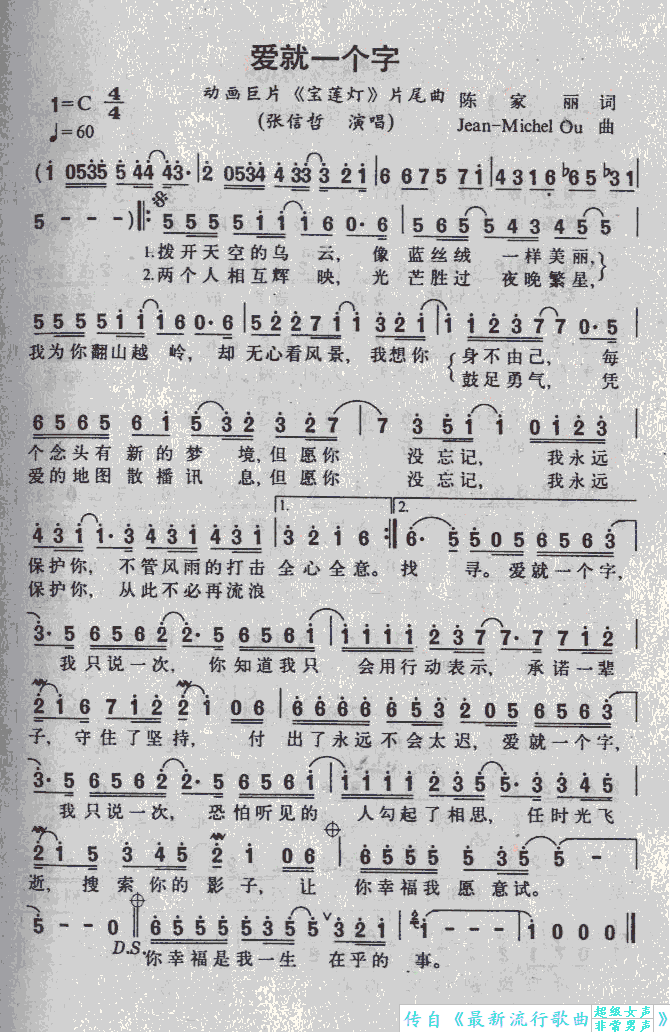 爱就一个字
动画巨片《宝莲灯》片尾曲 陈家丽 词
1=C 4/4
♩=60
(张信哲 演唱) Jean-Michel Ou 曲
1.拨开天空的乌云, 像蓝丝绒一样美丽,
2.两个人相互辉映, 光芒胜过夜晚繁星,
我为你翻山越岭, 却无心看风景, 我想你 身不由己, 每
鼓足勇气, 凭
个念头有新的梦境,但愿你 没忘记, 我永远
爱的地图散播讯息,但愿你 没忘记, 我永远
1. 2.
保护你, 不管风雨的打击全心全意。找寻。爱就一个字,
保护你, 从此不必再流浪
我只说一次, 你知道我只会用行动表示, 承诺一辈
子, 守住了坚持, 付出了永远不会太迟, 爱就一个字,
我只说一次, 恐怕听见的人勾起了相思, 任时光飞
逝, 搜索你的影子, 让你幸福我愿意试。
D.S. 你幸福是我一生在乎的事。
传自《最新流行歌曲 超级女声 非常男声》